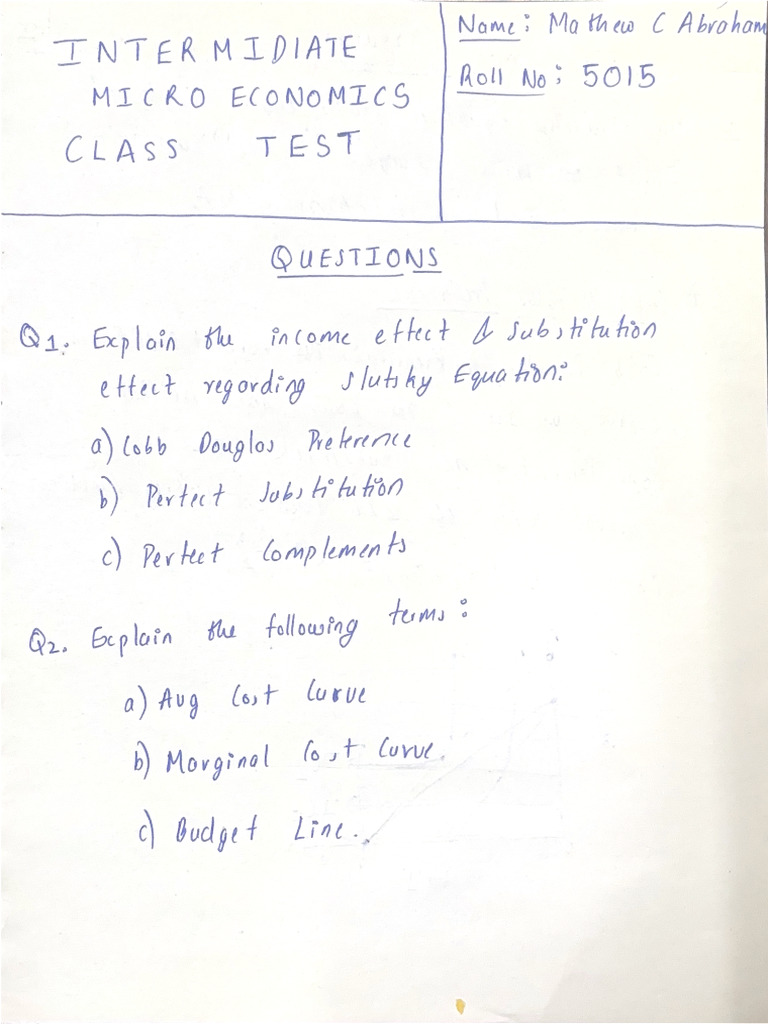 INTERMIDIATE
MICRO ECONOMICS
CLASS TEST
Name: Mathew C Abraham
Roll No: 5015
QUESTIONS
Q1. Explain the income effect & substitution
effect regarding Slutsky Equation:
a) Cobb Douglas Preference
b) Perfect Substitution
c) Perfect Complements
Q2. Explain the following terms:
a) Avg Cost Curve
b) Marginal Cost Curve.
c) Budget Line.